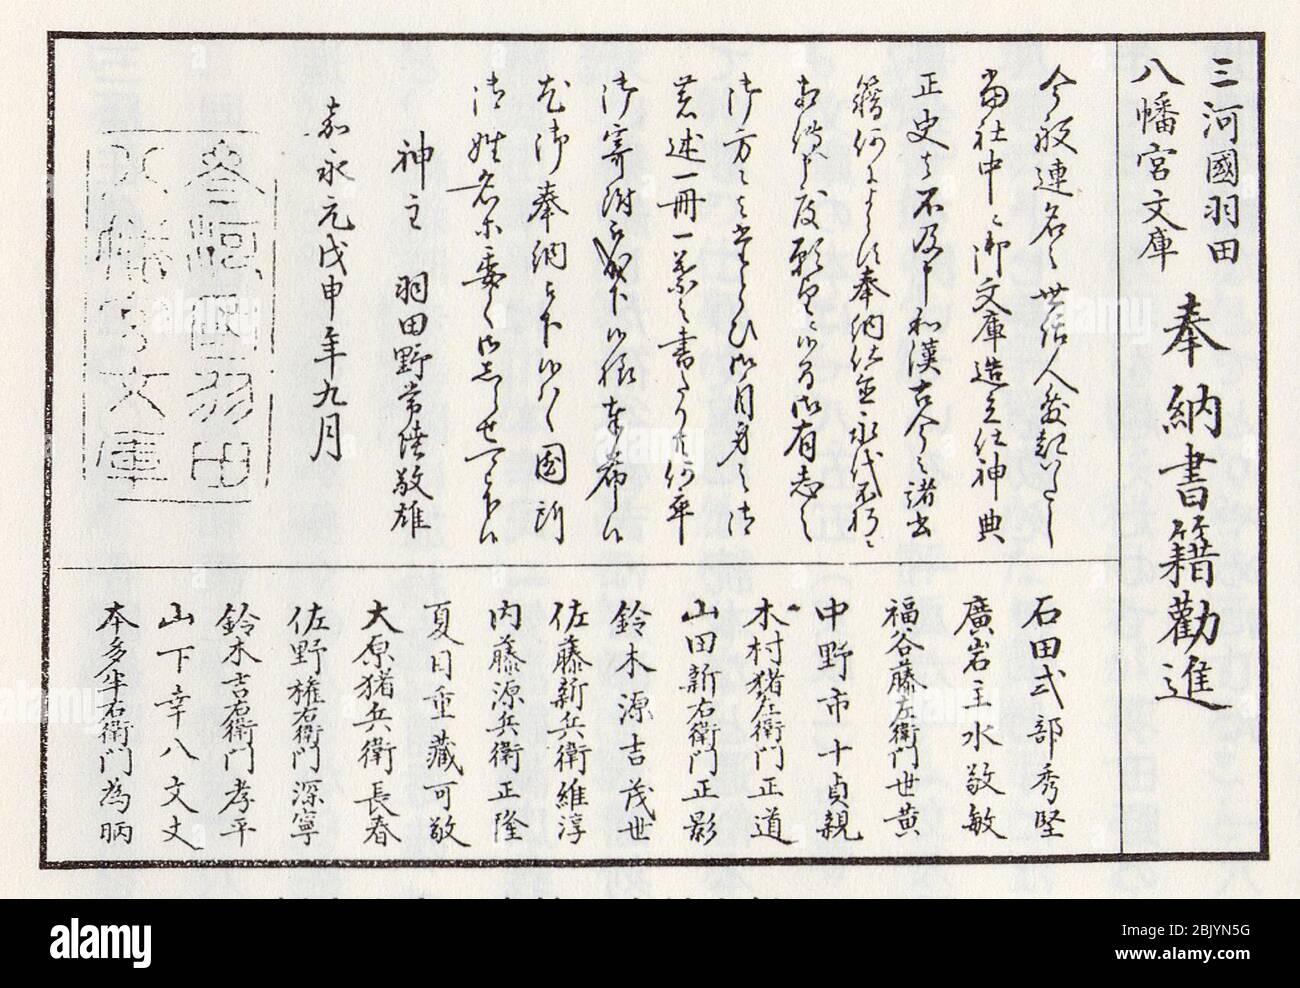 三河國羽田
八幡宮文庫
奉納書籍勸進
今般連名之世話人發起いたし
當社中ニ御文庫造立仕神典
正史者不及申和漢古今之諸書
籍何によらす奉納仕置永代不朽ニ
相傳申度願望ニ御有志之
御方
著述一冊一葉之書たり共何卒
御寄附被成下候様奉希候
尤御奉納被下候ハヽ國所
御姓名委く
神主 羽田野常陸敬雄
嘉永元戊申年九月
参河国羽田
八幡宮文庫
石田式部秀堅
廣岩主水敬敏
福谷藤左衛門世黄
中野市十貞親
木村猪左衛門正道
山田新右衛門正影
鈴木源吉茂世
佐藤新兵衛維淳
内藤源兵衛正隆
夏目重藏可敬
大原猪兵衛長春
佐野權右衛門深寧
鈴木吉右衛門孝平
山下幸八文丈
本多半右衛門為昞
alamy
Image ID: 2BJYN5G
www.alamy.com